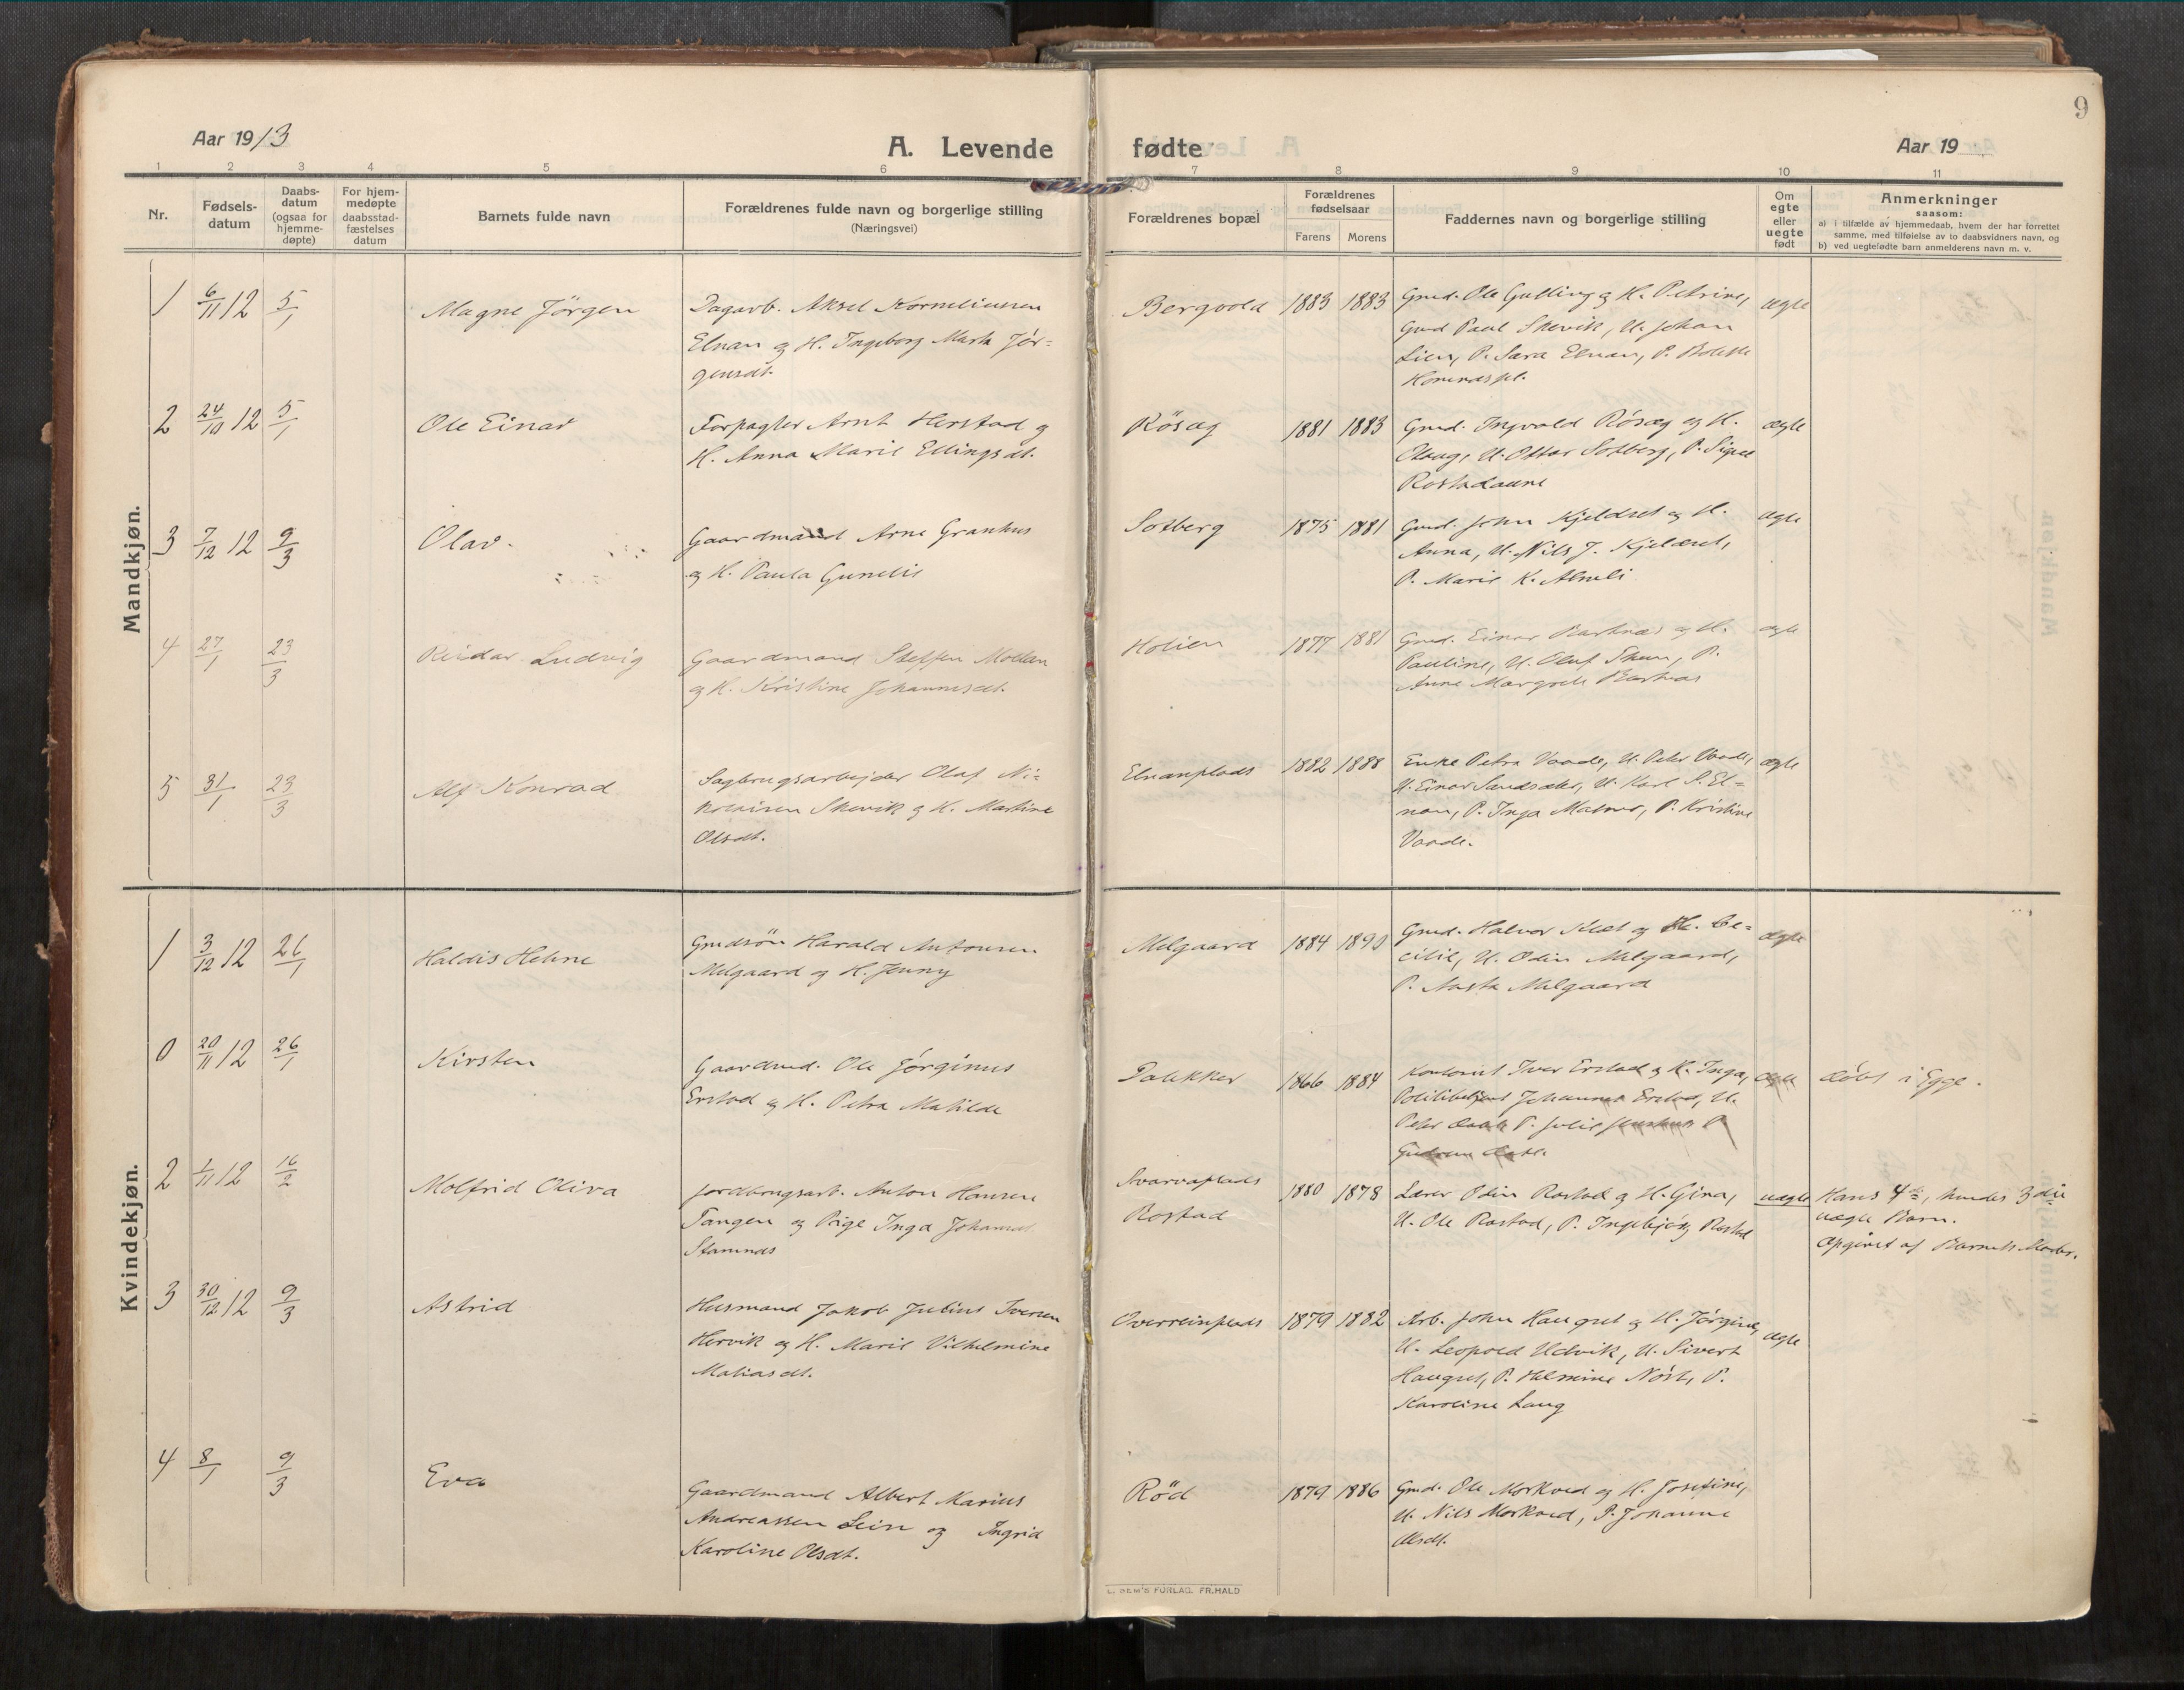 9
Aar 1913
A. Levende fødte
Aar 19
1 2 3 4 5 6 7 8 9 10 11
Nr.
Fødsels-
datum
Daabs-
datum
(ogsaa for
hjemme-
døpte)
For hjem-
medøpte
daabsstad-
fæstelses
datum
Barnets fulde navn
Forældrenes fulde navn og borgerlige stilling
(Næringsvei)
Forældrenes bopæl
Forældrenes
fødselsaar
Farens Morens
Faddernes navn og borgerlige stilling
Om
egte
eller
uegte
født
Anmerkninger
saasom:
a) i tilfælde av hjemmedaab, hvem der har forrettet
samme, med tilføielse av to daabsvidners navn, og
b) ved uegtefødte barn anmelderens navn m. v.
Mandkjøn.
1 6/11 12 5/1
Magne Jörgen
Dagarb. Aksel Korneliussen
Elnan og H. Ingeborg Marta Jör=
gensdt.
Bergvold
1883 1883
Gmd. Ole Gulling og H. Petrine,
Gmd Paul Skevik, U. Johan
Lien, P. Sara Elnan, P.
ægte
2 24/10 12 5/1
Ole Einar
Forpagter Arnt Herstad og
H. Anna Marie Ellingsdt.
Rösæg
1881 1883
Gmd. Ingvald Rösæg og H.
Olaug, U. Ottar Solberg, P. Signe
Rostadaune
ægte
3 7/12 12 9/3
Olav.
Gaardmand Arne Granhus
og H. Paula Gunelie
Solberg
1875 1881
Gmd. John Kjeldset og H.
Anna, U. Nils J. Kjeldset,
P. Marie K. Almli
ægte
4 27/1 23/3
Reidar Ludvig
Gaardmand Steffen Mollan
og H. Kristine Johannesdt.
Holien
1877 1881
Gmd. Einar Bartnæs og H.
Pauline, U. Oluf Skun, P.
Anne Margrete Bartnæs
ægte
5 31/1 23/3
Alf Konrad
Sagbrugsarbejder Olaf Ni=
kolaisen Skevik og H. Martine
Olsdt.
Elnanplads
1882 1888
Enke Petra Vaade, U. Peter Vaade,
U. Einar Sandsæter, U. Karl P. El=
nan, P. Inga Malmo, P. Kristine
Vaade.
ægte
Kvindekjøn.
1 3/12 12 26/1
Haldis Helene
Gmdsön Harald Antonsen
Melgaard og H. Jenny
Melgaard
1884 1890
Gmd. Halvor Klæt og H. Ce=
cilie, U. Odin Melgaard,
P. Aasta Melgaard
ægte
0 20/11 12 26/1
Kirsten
Gaardmd. Ole Jörginus
Erstad og H. Petra Matilde
Dalekker
1866 1884
Kontorist Iver Erstad og H. Inga,
Politibetjent Johannes Erstad, U.
Peter P. Julie P
Gudrun
ægte
döbt i Egge.
2 1/11 12 16/2
Molfrid Oliva
Jordbrugsarb. Anton Hansen
Tangen og Pige Inga Johannsd.
Stamnes
Svarvaplads
Rostad
1880 1878
Lærer Odin Rostad og H. Gina,
U. Ole Rostad, P. Ingebjörg Rostad
uægte
Hans 4de, hendes 3die
uægte Barn.
Opgivet af Barnets Moder.
3 30/12 12 9/3
Astrid
Husmand Jakob Julius Iversen
Hervik og H. Marie Vilhelmine
Matiasdt.
Overreinplads
1879 1882
Arb. John Haugset og H. Jörgine,
U. Leopold Udvik, U. Sivert
Haugset, P. Helmine Nöst, P.
Karoline Laug
ægte
4 8/1 9/3
Eva
Gaardmand Albert Marius
Andreassen Lein og Ingrid
Karoline Olsdt.
Röd
1879 1886
Gmd. Ole Morkved og H. Josefine,
U. Nils Morkved, P. Johanne
Olsdt.
E. SEM'S FORLAG. FR.HALD